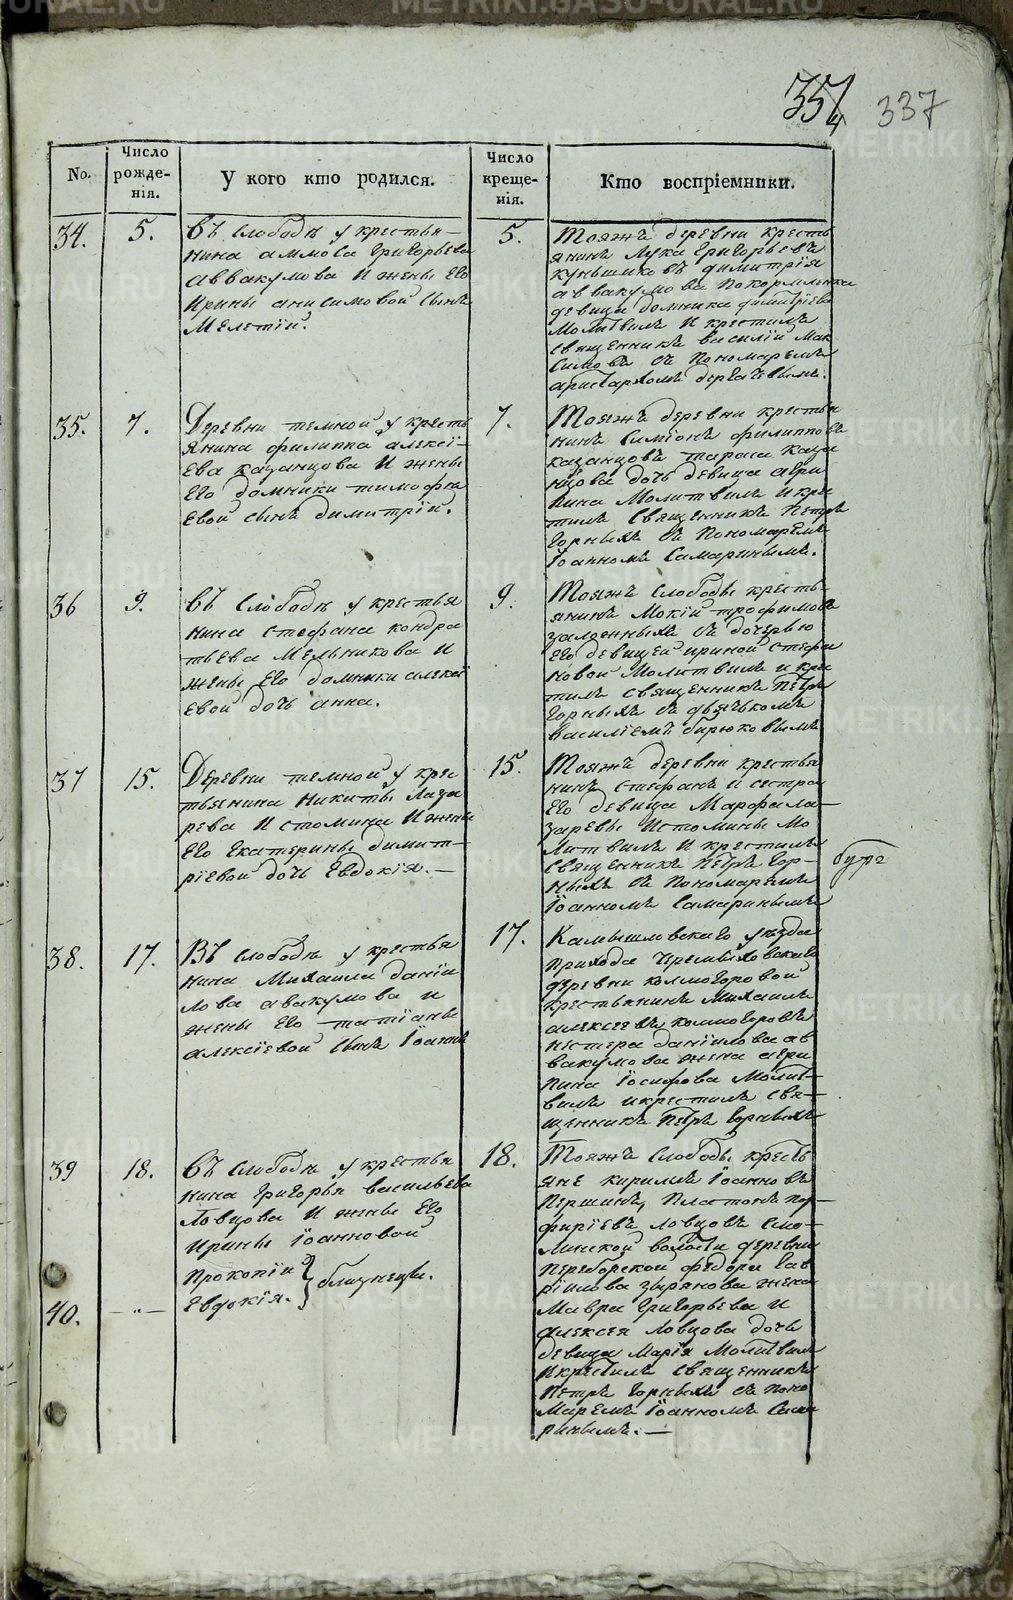 354 337
No.
Число рожде-нія.
У кого кто родился.
Число креще-нія.
Кто воспріемники.
34.
5.
Въ слободѣ у крестья-
нина аммоса григорьева
аввакумова и жены его
ирины анисимовой сынъ
Мелетій.
5.
Тояжъ деревни кресть
янинъ Лука григорьевъ
димитрія
аввакумова
девица домника димитріева
Молитвилъ и крестилъ
священникъ василій Мак
симовъ съ пономаремъ
аристархомъ дергачевымъ.
35.
7.
Деревни темной у кресть
янина филиппа алексі-
ева казанцова и жены
его домники тимофе
евой сынъ димитрій.
7.
Тояжъ деревни крестья
нинъ Симіонъ филипповъ
казанцовъ тараса каза
нцова дочь девица агри
пина Молитвилъ и кре
тилъ священникъ Петръ
горныхъ съ пономаремъ
Іоанномъ Самаринымъ.
36
9.
Въ слободѣ у крестья
нина стефана кондра
тьева Мельникова и
жены его домники алексі
евой дочь анна.
9.
Тояжъ слободы кресть-
янинъ Мокій трофимовъ
съ дочерью
его девицей ириной стефа
новой Молитвилъ и кре
тилъ священникъ Петръ
горныхъ съ дьячькомъ
василіемъ бирюковымъ
37
15.
Деревни темной у крес
тьянина никиты Лаза
рева Истомина и жены
его екатерины димит-
ріевой дочь Евдокія.—
15.
Тояжъ деревни крестья
нинъ стефанъ и сестра
его девица Марфа ла-
заревы Истомины Мо
литвилъ и крестилъ
священникъ Петръ гор-
ныхъ съ пономаремъ
Іоанномъ Самаринымъ
38.
17.
Въ слободѣ у крестья
нина Михаила даніи
лова авакумова и
жены его татіаны
алексіевой сынъ Іоаннъ
17.
Камышловскаго уезда
прихода
деревни колмогоровой
крестьянинъ Михаилъ
алексеевъ колмогоровъ
нестера даніилова ав
вакумова жена агри
пина Іосифова Молит-
вилъ и крестилъ свя-
щенникъ Петръ горныхъ
39
18.
Въ слободѣ у крестья
нина григорья васильева
Ловцова и жены его
ирины Іоанновой
прокопій } близнецы.
Евдокія.
18.
Тояжъ слободы кресть
яне кирилъ Іоанновъ
Першинъ, платонъ пор-
фиріевъ ловцовъ смо-
линской волости деревни
переборской федора гав
ріилова зырянова жена
Мавра григорьева и
алексея ловцова дочь
девица Марія Молитвилъ
и крестилъ священникъ
петръ горныхъ съ поно
маремъ Іоанномъ Сама
ринымъ.—
40.
— " —